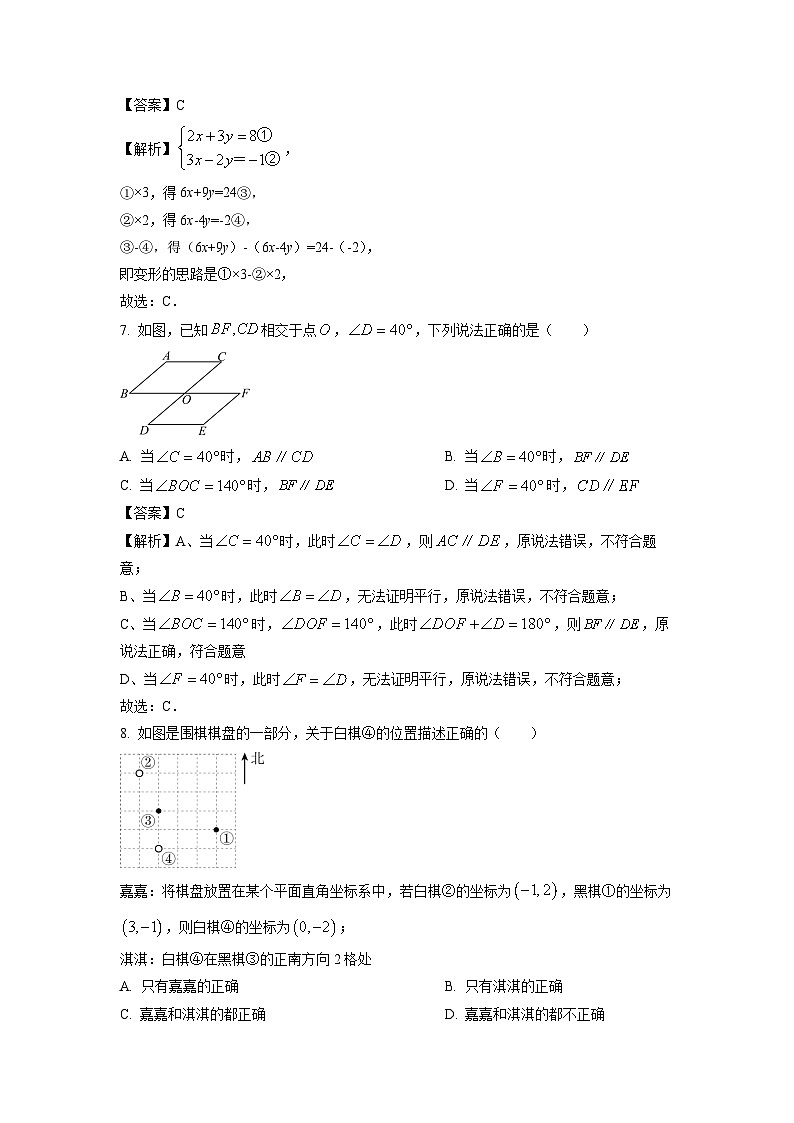 【答案】C
【解析】{2x+3y=8①
3x−2y=−1②，
①×3，得6x+9y=24③，
②×2，得6x-4y=-2④，
③-④，得（6x+9y）-（6x-4y）=24-（-2），
即变形的思路是①×3-②×2，
故选：C．
7. 如图，已知BF,CD相交于点O，∠D=40°，下列说法正确的是（　　）
A C
B O F
D E
A. 当∠C=40°时，AB∥CD B. 当∠B=40°时，BF∥DE
C. 当∠BOC=140°时，BF∥DE D. 当∠F=40°时，CD∥EF
【答案】C
【解析】A、当∠C=40°时，此时∠C=∠D，则AC∥DE，原说法错误，不符合题
意；
B、当∠B=40°时，此时∠B=∠D，无法证明平行，原说法错误，不符合题意；
C、当∠BOC=140°时，∠DOF=140°，此时∠DOF+∠D=180°，则BF∥DE，原
说法正确，符合题意
D、当∠F=40°时，此时∠F=∠D，无法证明平行，原说法错误，不符合题意；
故选：C．
8. 如图是围棋棋盘的一部分，关于白棋④的位置描述正确的（　　）
② 北
③
①
④
嘉嘉：将棋盘放置在某个平面直角坐标系中，若白棋②的坐标为(−1,2)，黑棋①的坐标为
(3,−1)，则白棋④的坐标为(0,−2)；
淇淇：白棋④在黑棋③的正南方向2格处
A. 只有嘉嘉的正确 B. 只有淇淇的正确
C. 嘉嘉和淇淇的都正确 D. 嘉嘉和淇淇的都不正确